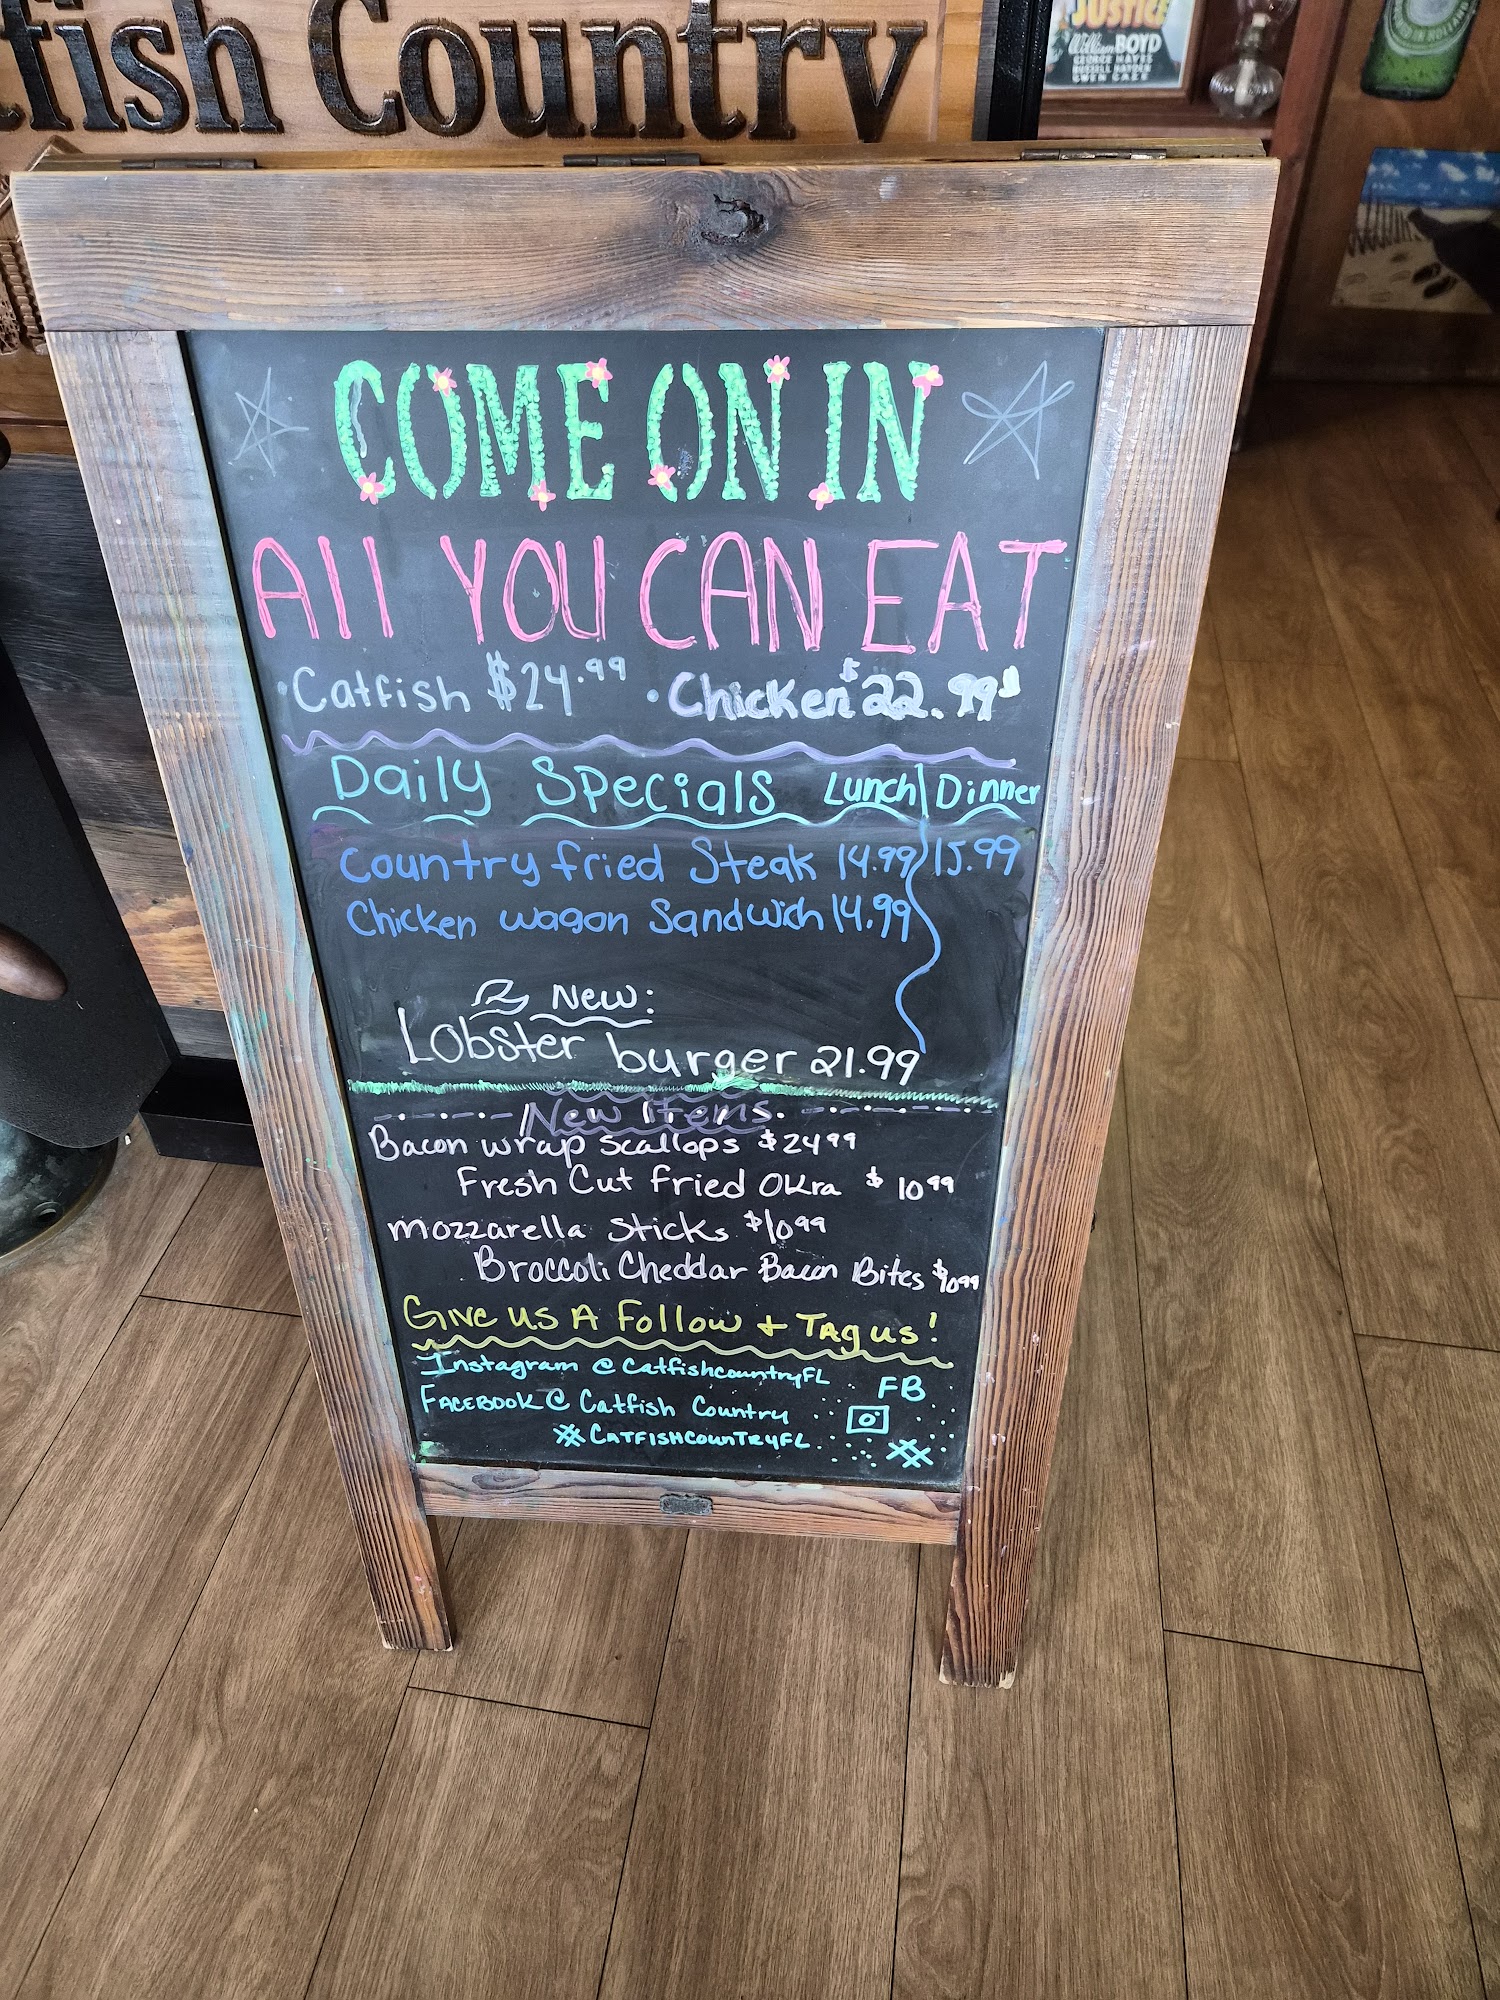 fish Country
JUSTICE
William BOYD
GEORGE HAYES
RUSSELL HAYDEN
GWEN GAZE
COME ON IN
All YOU CAN EAT
• Catfish $24.99 • Chicken $22.99
Daily Specials Lunch | Dinner
Country fried Steak 14.99 15.99
Chicken wagon Sandwich 14.99
New:
Lobster burger 21.99
New Items.
Bacon wrap scallops $24.99
Fresh Cut fried Okra $10.99
mozzarella sticks $10.99
Broccoli Cheddar Bacon Bites $10.99
Give us A Follow + Tag us!
Instagram @ CatfishcountryFL
FB
Facebook @ Catfish Country
#CATFISHCOUNTRYFL
#